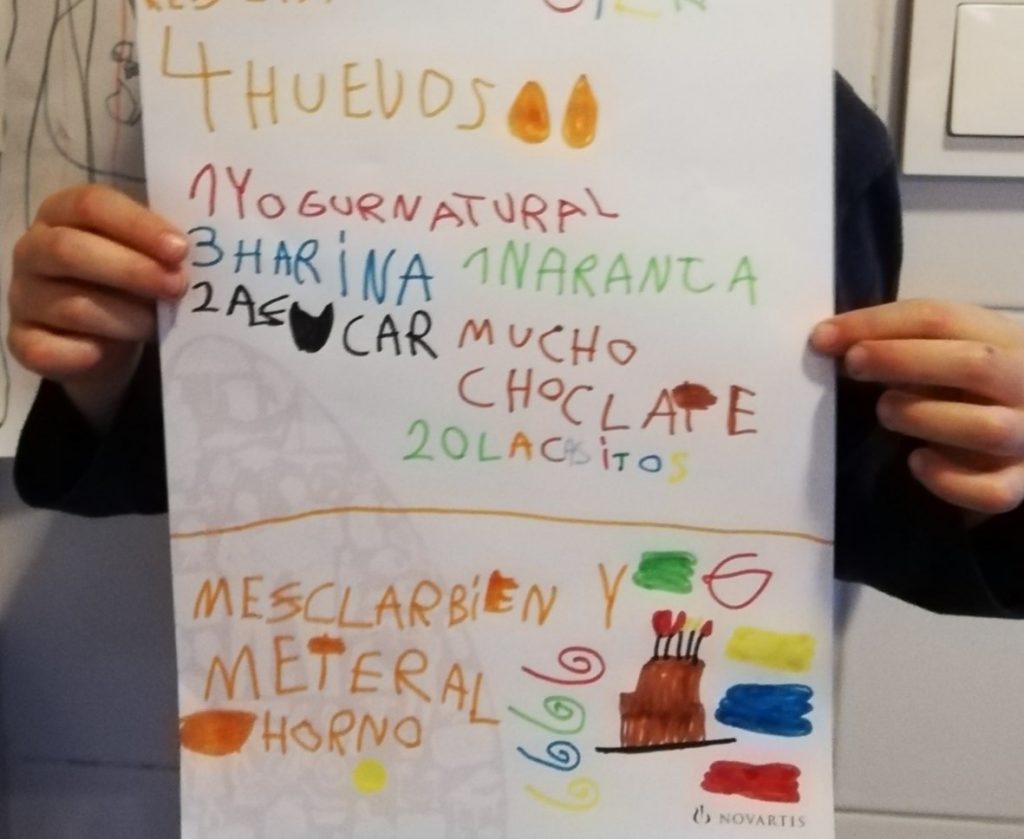 4 HUEVOS
1 YOGUR NATURAL
3 HARINA 1 NARANJA
2 AS CAR MUCHO
CHOCLATE
20 LACASITOS
MESCLAR BIEN Y
METER AL
HORNO
NOVARTIS